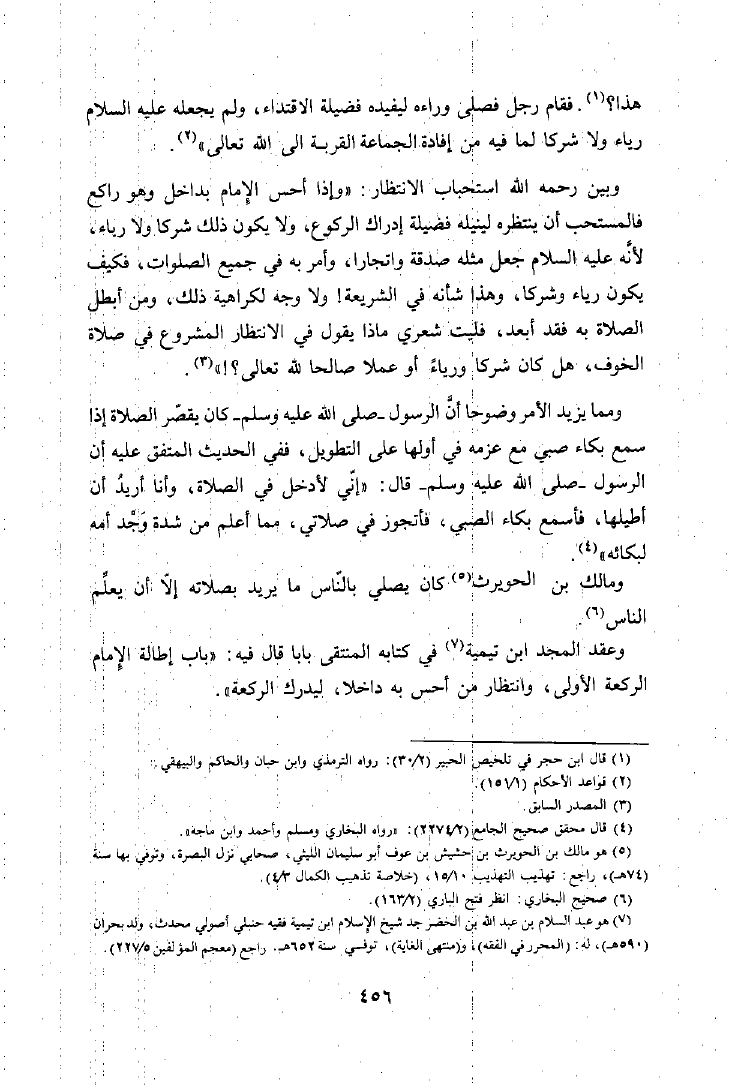 هذا؟(١). فقام رجل فصلى وراءه ليفيده فضيلة الاقتداء، ولم يجعله عليه السلام
رياء ولا شركا لما فيه من إفادة الجماعة القربة الى الله تعالى»(٢).
وبين رحمه الله استحباب الانتظار: «وإذا أحس الإمام بداخل وهو راكع
فالمستحب أن ينتظره لينيله فضيلة إدراك الركوع، ولا يكون ذلك شركا ولا رياء،
لأنَّه عليه السلام جعل مثله صدقة واتجارا، وأمر به في جميع الصلوات، فكيف
يكون رياء وشركا، وهذا شأنه في الشريعة! ولا وجه لكراهية ذلك، ومن أبطل
الصلاة به فقد أبعد، فليت شعري ماذا يقول في الانتظار المشروع في صلاة
الخوف، هل كان شركا ورياءً أو عملا صالحا لله تعالى؟!»(٣).
ومما يزيد الأمر وضوحا أنَّ الرسول -صلى الله عليه وسلم- كان يقصّر الصلاة إذا
سمع بكاء صبي مع عزمه في أولها على التطويل، ففي الحديث المتفق عليه أن
الرسول -صلى الله عليه وسلم- قال: «إنّي لأدخل في الصلاة، وأنا أريدُ أن
أطيلها، فأسمع بكاء الصبي، فأتجوز في صلاتي، مما أعلم من شدة وَجْد أمه
لبكائه»(٤).
ومالك بن الحويرث(٥) كان يصلي بالنّاس ما يريد بصلاته إلّا أن يعلِّم
الناس(٦).
وعقد المجد ابن تيمية(٧) في كتابه المنتقى بابا قال فيه: «باب إطالة الإمام
الركعة الأولى، وانتظار من أحس به داخلا، ليدرك الركعة».
(١) قال ابن حجر في تلخيص الحبير (٣٠/٢): رواه الترمذي وابن حبان والحاكم والبيهقي.
(٢) قواعد الأحكام (١٥٦/١).
(٣) المصدر السابق.
(٤) قال محقق صحيح الجامع (٢٢٧٤/٢): «رواه البخاري ومسلم وأحمد وابن ماجه».
(٥) هو مالك بن الحويرث بن حشيش بن عوف أبو سليمان الليثي، صحابي نزل البصرة، وتوفي بها سنة
(٧٤هـ)، راجع: تهذيب التهذيب ١٥/١٠، (خلاصة تذهيب الكمال ٤/٣).
(٦) صحيح البخاري: انظر فتح الباري (١٦٣/٢).
(٧) هو عبد السلام بن عبد الله بن الخضر جد شيخ الإسلام ابن تيمية فقيه حنبلي أصولي محدث، ولد بحران
(٥٩٠هـ)، له: (المحرر في الفقه)، و(منتهى الغاية)، توفسي سنة ٦٥٢هـ. راجع (معجم المؤلفين ٢٢٧/٥).
٤٥٦